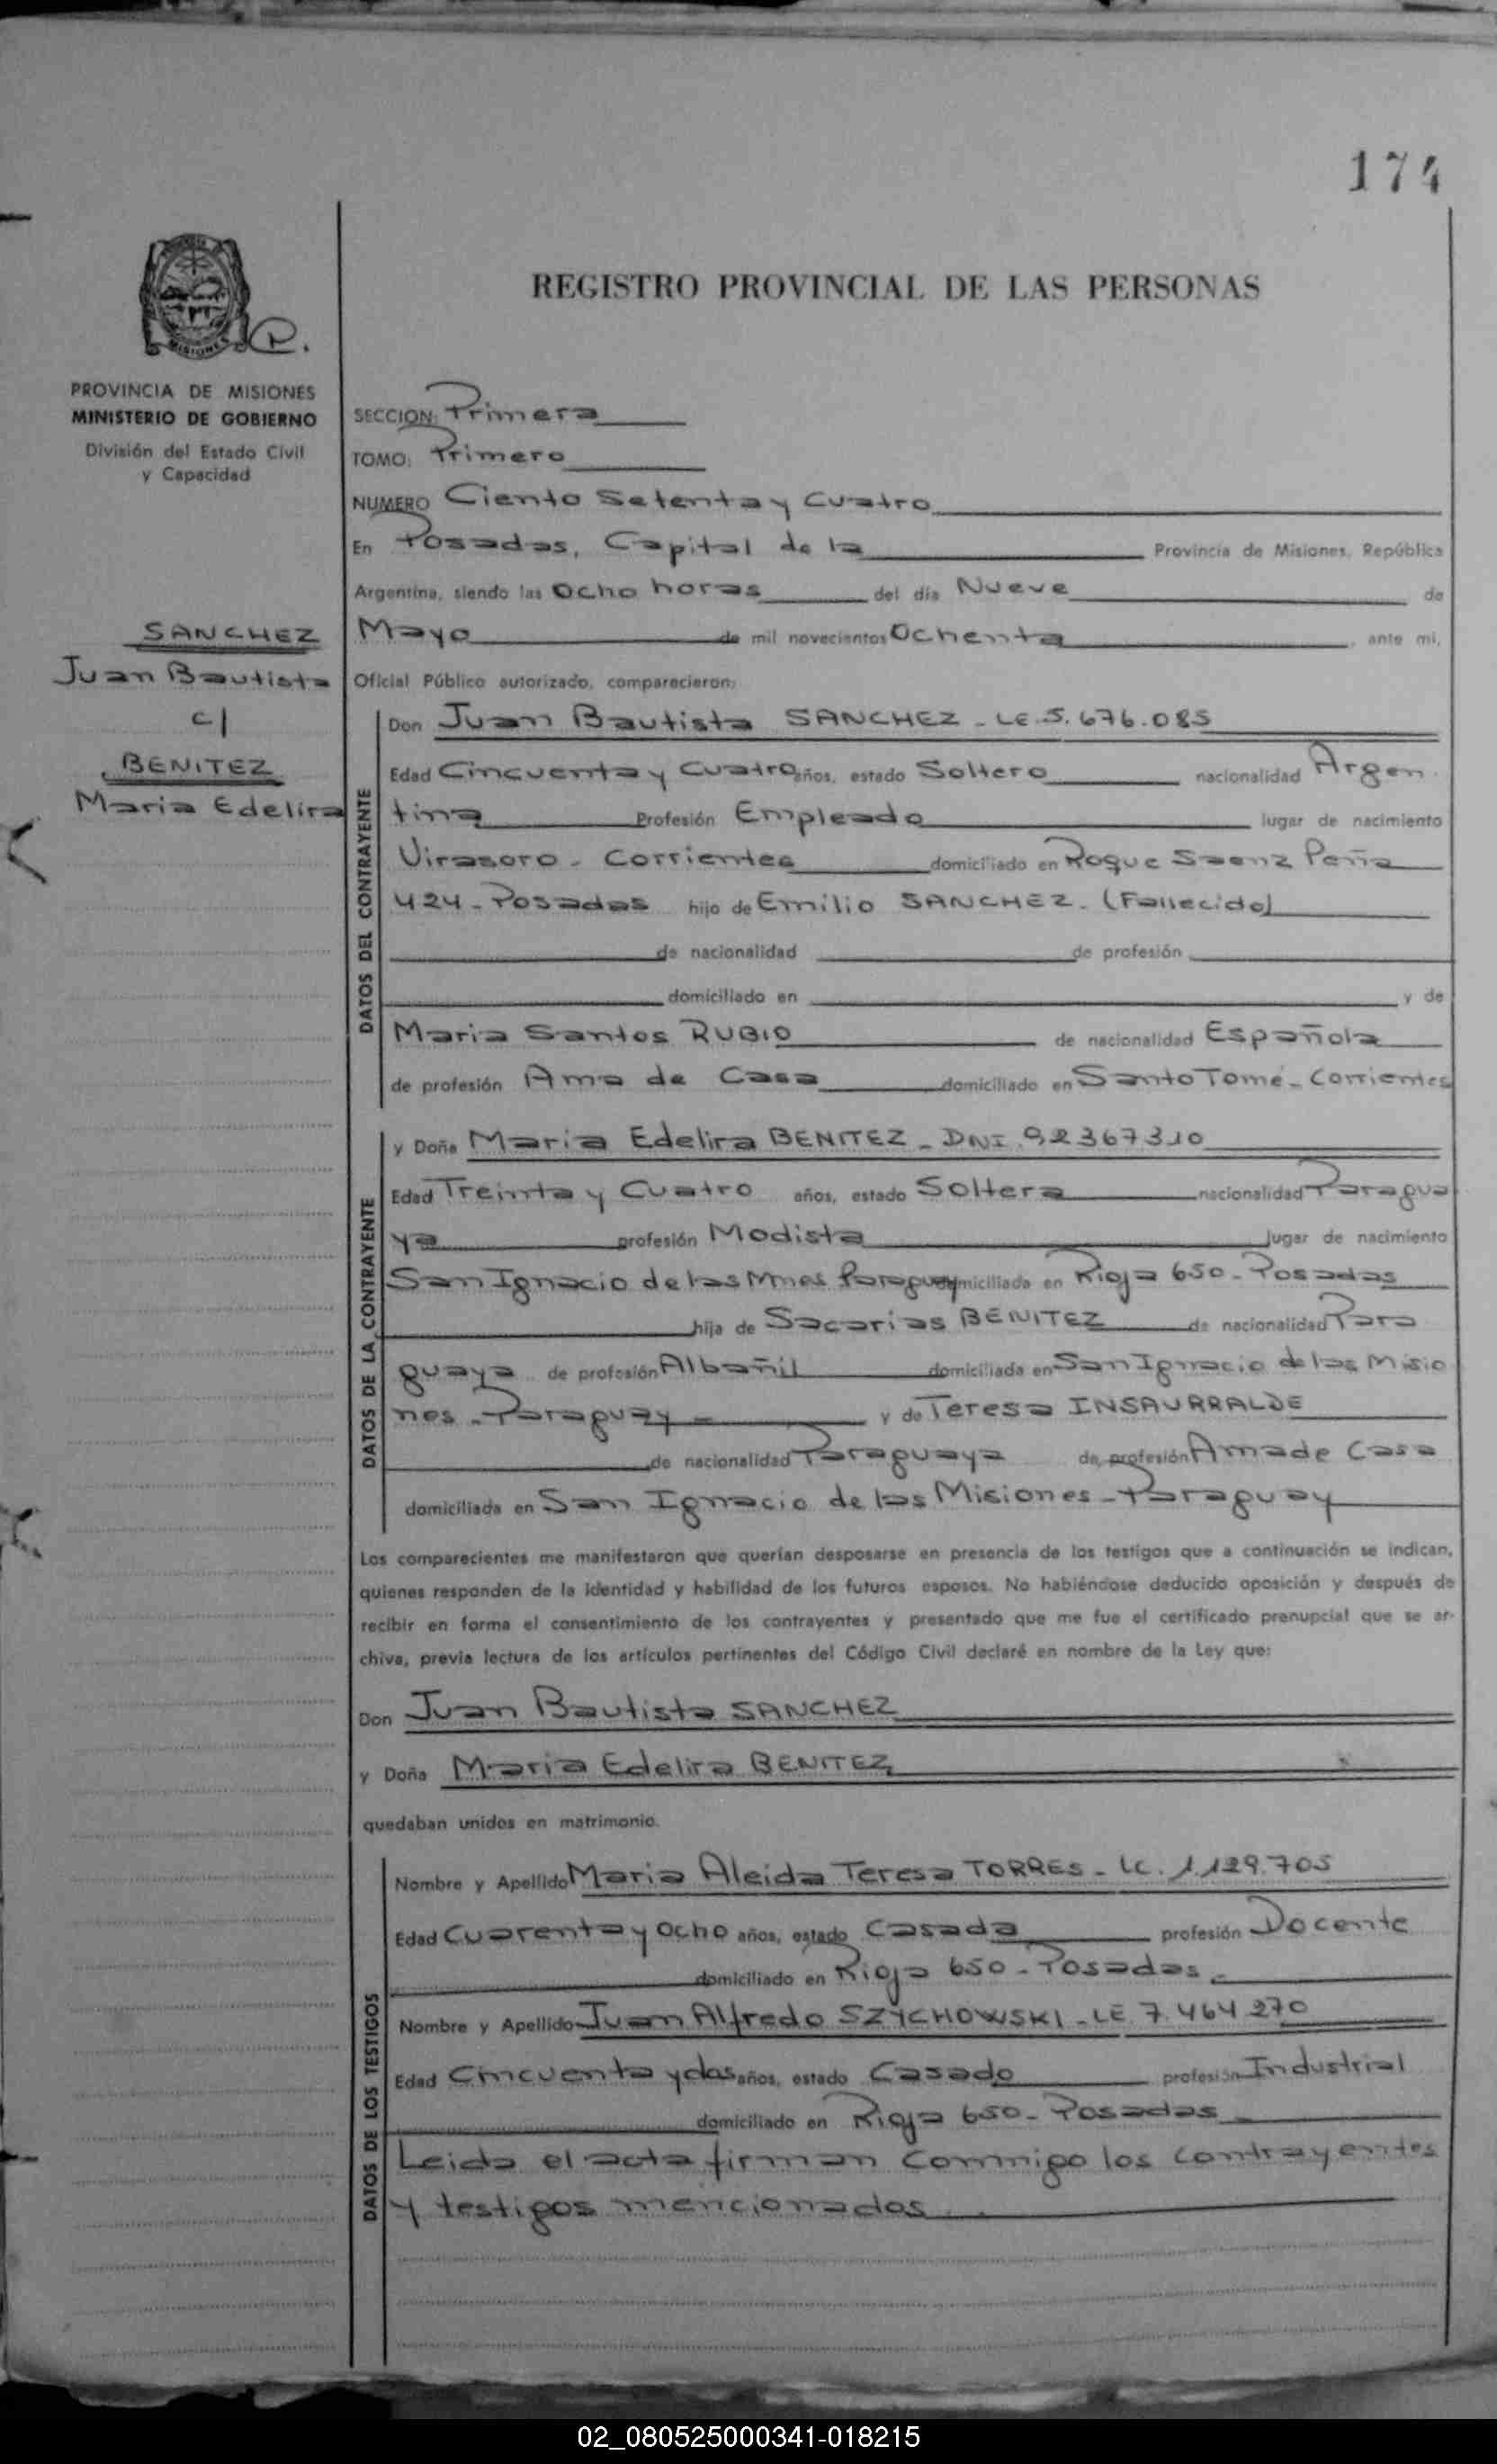 174
REGISTRO PROVINCIAL DE LAS PERSONAS
MISIONES
P.
PROVINCIA DE MISIONES
MINISTERIO DE GOBIERNO
División del Estado Civil
y Capacidad
SANCHEZ
Juan Bautista
c/
BENITEZ
Maria Edelira
SECCION: Primera
TOMO: Primero
NUMERO Ciento Setenta y Cuatro
En Posadas, Capital de la Provincia de Misiones, República
Argentina, siendo las Ocho horas del día Nueve de
Mayo de mil novecientos Ochenta, ante mi,
Oficial Público autorizado, comparecieron:
DATOS DEL CONTRAYENTE
Don Juan Bautista SANCHEZ - LE. 5.676.085
Edad Cincuenta y Cuatro años, estado Soltero nacionalidad Argen
tina Profesión Empleado lugar de nacimiento
Virasoro - Corrientes domiciliado en Roque Saenz Peña
424 - Posadas hijo de Emilio SANCHEZ. (Fallecido)
de nacionalidad de profesión
domiciliado en y de
Maria Santos RUBIO de nacionalidad Española
de profesión Ama de Casa domiciliado en Santo Tomé - Corrientes
DATOS DE LA CONTRAYENTE
y Doña Maria Edelira BENITEZ - DNI. 92367310
Edad Treinta y Cuatro años, estado Soltera nacionalidad Paragua
ya profesión Modista lugar de nacimiento
San Ignacio de las Mnes Paraguay domiciliada en Rioja 650 - Posadas
hija de Sacarias BENITEZ de nacionalidad Para
guaya de profesión Albañil domiciliada en San Ignacio de las Misio
nes - Paraguay - y de Teresa INSAURRALDE
de nacionalidad Paraguaya de profesión Ama de Casa
domiciliada en San Ignacio de las Misiones - Paraguay
Los comparecientes me manifestaron que querían desposarse en presencia de los testigos que a continuación se indican,
quienes responden de la identidad y habilidad de los futuros esposos. No habiéndose deducido oposición y después de
recibir en forma el consentimiento de los contrayentes y presentado que me fue el certificado prenupcial que se ar-
chiva, previa lectura de los artículos pertinentes del Código Civil declaré en nombre de la Ley que:
Don Juan Bautista SANCHEZ
y Doña Maria Edelira BENITEZ
quedaban unidos en matrimonio.
DATOS DE LOS TESTIGOS
Nombre y Apellido Maria Aleida Teresa TORRES - LC. 1.129.705
Edad Cuarenta y Ocho años, estado Casada profesión Docente
domiciliado en Rioja 650 - Posadas -
Nombre y Apellido Juan Alfredo SZYCHOWSKI - LE 7.464.270
Edad Cincuenta y dos años, estado Casado profesión Industrial
domiciliado en Rioja 650 - Posadas
Leida el acta firman conmigo los contrayentes
y testigos mencionados
02_080525000341-018215